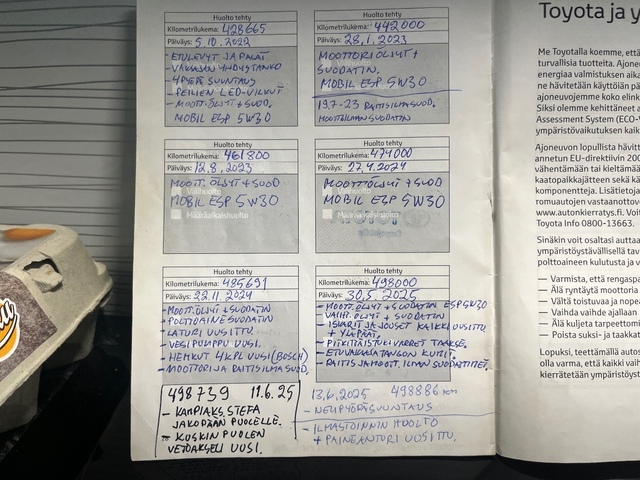 Huolto tehty
Kilometrilukema: 428665
Päiväys: 5.10.2022
- ETULEVYT JA PALAT
- VAKAAJAN YHDYSTANKO
- 4PYÖRÄ SUUNTAUS
- PEILIEN LED-VILKUT
- MOOTT.ÖLJYT+SUOD.
MOBIL ESP 5W30
Huolto tehty
Kilometrilukema: 442000
Päiväys: 28.1.2023
MOOTTORIÖLJYT+
SUODATIN.
MOBIL ESP 5W30
19.7-23 RAITISILMASUOD.
MOOTT.ILMAN SUODATIN
Huolto tehty
Kilometrilukema: 461800
Päiväys: 12.8.2023
MOOTT.ÖLJYT+SUOD
Välihuolto
MOBIL ESP 5W30
Määräaikaishuolto
Huolto tehty
Kilometrilukema: 474000
Päiväys: 27.4.2024
MOOTTÖLJYT+SUOD
MOBIL ESP 5W30
Määräaikaishuolto
Huolto tehty
Kilometrilukema: 485691
Päiväys: 22.11.2024
- MOOTT.ÖLJYT+SUODATIN
- POLTTOAINESUODATIN
- LATURI UUSITTU
- VESIPUMPPU UUSI.
- HEHKUT 4KPL UUSI (BOSCH)
- MOOTTORI JA RAITISILMA SUOD.
Huolto tehty
Kilometrilukema: 498000
Päiväys: 30.5.2025
- MOOTT.ÖLJYT+SUODATIN ESP 5W30
- VAIHT.ÖLJYT + SUODATIN
- ISKARIT JA JOUSET KAIKKI UUSITTU
+ YLÄPÄÄT.
- PITKITTÄISTUKIVARRET TAAKSE.
- ETUVAKAAJATANGON KUMIT.
- RAITIS JA MOOTT.ILMAN SUODATTIMET.
498739 11.6.25
- KAMPIAKS.STEFA
JAKOPÄÄN PUOLELLE.
- KUSKIN PUOLEN
VETOAKSELI UUSI.
13.6.2025 498886 km
- NELIPYÖRÄSUUNTAUS
- ILMASTOINNIN HUOLTO
+ PAINEANTURI UUSITTU.
Toyota ja y
Me Toyotalla koemme, että
turvallisia tuotteita. Ajone
energiaa valmistuksen aika
ne hävitetään käyttöiän pä
ajoneuvojemme koko elink
Siksi olemme kehittäneet a
Assessment System (ECO-V
ympäristövaikutuksen kaik
Ajoneuvon lopullista hävitt
annetun EU-direktiivin 200
vähentämään tai kieltämää
kaatopaikkajätteen sekä kä
komponentteja. Lisätietoj
romuautojen vastaanottove
www.autonkierratys.fi. Voi
Toyota Info 0800-13663.
Sinäkin voit osaltasi auttaa
ympäristöystävällisellä tav
polttoaineen kulutusta ja v
— Varmista, että rengaspa
— Älä ryntäytä moottoria
— Vältä toistuvaa ja nopea
— Vaihda vaihde ajallaan
— Älä kuljeta tarpeettomi
— Poista suksi- ja taakkat
Lopuksi, teettämällä autos
olla varma, että kaikki vaih
kierrätetään ympäristöyst